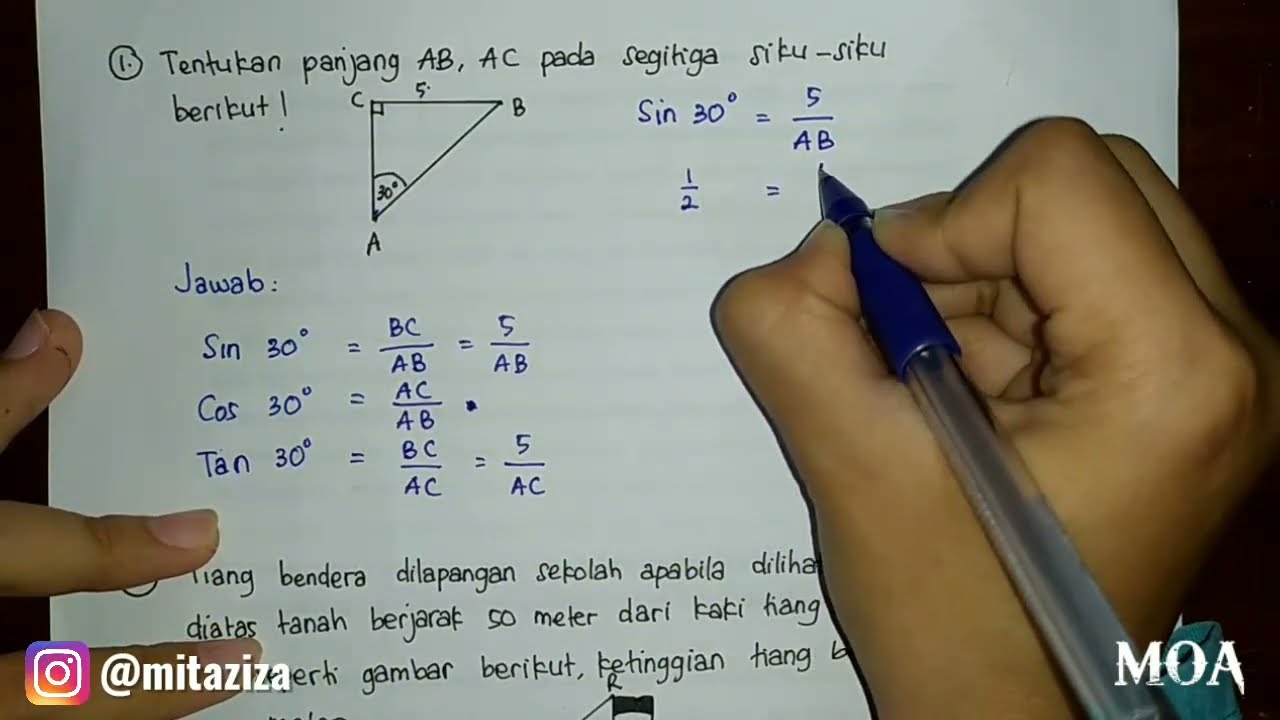 1. Tentukan panjang AB, AC pada segitiga siku-siku
berikut!
C 5 B
30°
A
Sin 30° = 5/AB
1/2 =
Jawab:
Sin 30° = BC/AB = 5/AB
Cos 30° = AC/AB
Tan 30° = BC/AC = 5/AC
Tiang bendera dilapangan sekolah apabila
diatas tanah berjarak 50 meter dari kaki tiang
gambar berikut, ketinggian tiang
R
@mitaziza
MOA